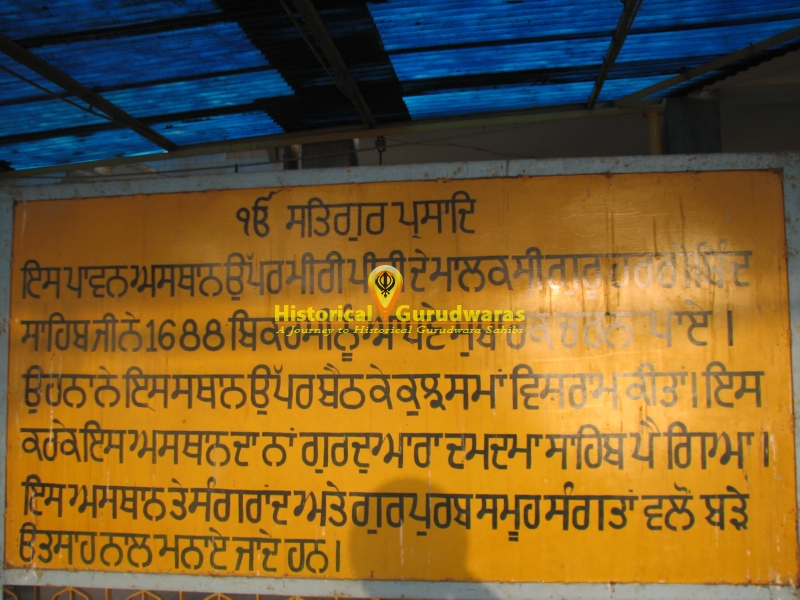 ੴ ਸਤਿਗੁਰ ਪ੍ਰਸਾਦਿ
ਇਸ ਪਾਵਨ ਅਸਥਾਨ ਉੱਪਰ ਮੀਰੀ ਪੀਰੀ ਦੇ ਮਾਲਕ ਸ੍ਰੀ ਗੁਰੂ ਹਰਗੋਬਿੰਦ
ਸਾਹਿਬ ਜੀ ਨੇ 1688 ਬਿਕਰਮੀ ਨੂੰ ਆਪਣੇ ਮੁਬਾਰਕ ਚਰਨ ਪਾਏ ।
ਉਹਨਾ ਨੇ ਇਸ ਸਥਾਨ ਉੱਪਰ ਬੈਠ ਕੇ ਕੁਝ ਸਮਾਂ ਵਿਸਰਾਮ ਕੀਤਾ। ਇਸ
ਕਰਕੇ ਇਸ ਅਸਥਾਨ ਦਾ ਨਾਂ ਗੁਰਦੁਆਰਾ ਦਮਦਮਾ ਸਾਹਿਬ ਪੈ ਗਿਆ ।
ਇਸ ਅਸਥਾਨ ਤੇ ਸੰਗਰਾਂਦ ਅਤੇ ਗੁਰਪੁਰਬ ਸਮੂਹ ਸੰਗਤਾਂ ਵਲੋਂ ਬੜੇ
ਉਤਸਾਹ ਨਾਲ ਮਨਾਏ ਜਾਦੇ ਹਨ।
Historical Gurudwaras
A Journey to Historical Gurudwara Sahibs